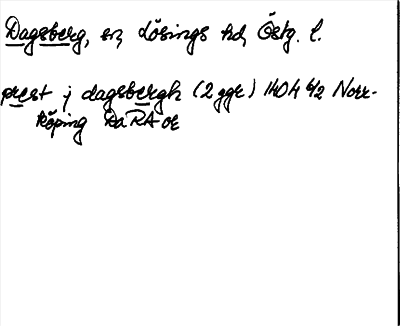 Dagsberg, sn, Lösings hd, Östg. l.
prest j dagsbergh (2 ggr) 1404 6/2 Norr-
köping DaRA or